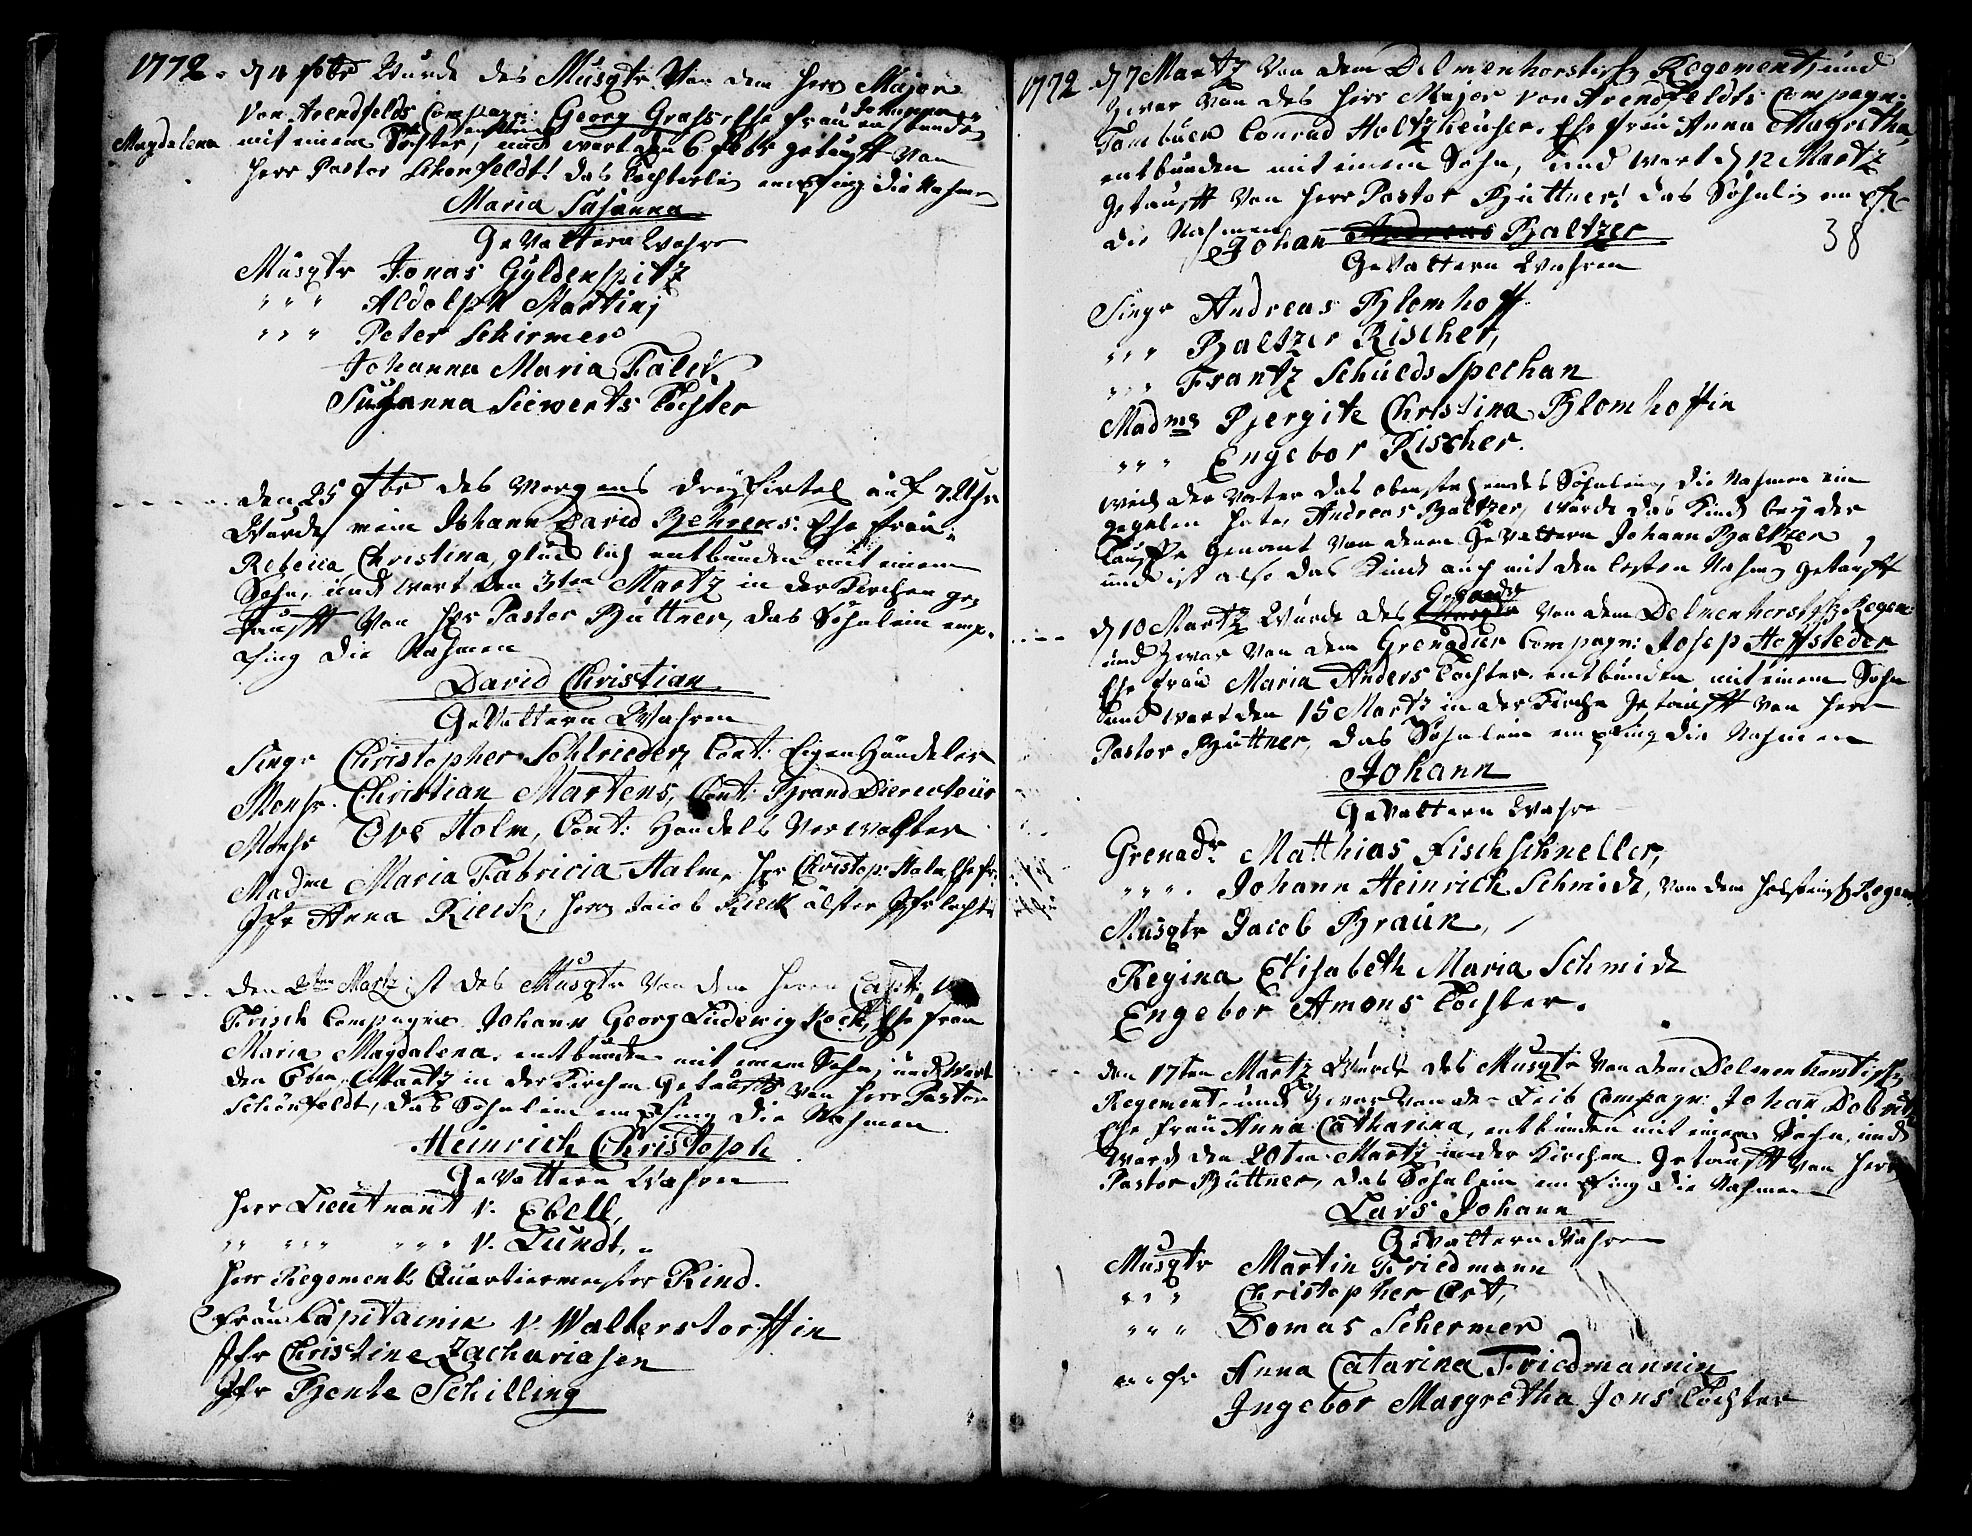 1772. d 4 febr Wurde des Musqtr Von dem Herr Major
Von Arendfelds Compagn: Georg Grass, Ehe frau Johanna
Magdalena entbunden
mit einem Tochter, und wart den 6 febr getaufft Von
Herr Pastor Schönfeldt! das Töchterlein empfing die Nahmen
Maria Susanna
GeVattern Wahren
Musqtr Jonas Gyldenspitz
" " " Aldolph Martinj
" " " Peter Schirmer
Johanna Maria Falck
Susanna Siewerts Tochter
den 25 febr des Morgens dreyfirtel auf 7 Uhr
Wurde mein Johann David Behrens: Ehe frau:
Rebecca Christina glücklich entbunden mit einem
Sohn, und wart den 3ten Martz in der Kirchen ge=
taufft Von Herr Pastor Büttner, das Söhnlein emp=
fing die Nahmen
David Christian
GeVattern Wahren
Singr Christopher Schlrieder, Cont: Eigen Händeler
Monsr. Christian Martens, Cont: Brand Directeür
Monsr Ove Holm, Cont: Handels Verwalter
Madme Maria Fabricia Halm, Herr Christop: Halm, Ehefr:
Jfr Anna Kieck, Herr Jacob Kieck älster Jfr tocht:
den 2ten Martz ist des Musqtr Von dem Herrn Capt: V.
Frisch Compagnie Johann Georg Ludewig Kock, Ehe frau
Maria Magdalena, entbunden mit einem Sohn, und Wart
den 6ten Martz in der Kirchen Getaufft Von Herr Pastor
Schönfeldt, das Söhnlein empfing die Nahmen
Heinrich Christoph
GeVattern Wahren
Herr Lieutnant V. Ebell,
" " " V. Lundt,
Herr Regements Quartiermeister Rind.
Frau Capitainin V. Walterstorffin
Jfr Christine Zachariasen
Jfr Bente Schilling
1772 d 7 Martz Von dem Delmenhorstisch Regement, und
zwar Von des Herr Major Von Arendfeldts Compagn:
Tambuer Conrad Holtzheuser, Ehe frau Anna Magretha,
entbunden mit einem Sohn, und wart d 12 Martz
Getaufft Von Herr Pastor Büttner! das Söhnlein empf:
die Nahmen
38
Johann Andreas Baltzer
GeVattern Wahren
Singr Andreas Blomhoff
" " " Baltzer Rischer,
" " " Frantz Schuldsspechan
Madms Bergite Christina Blomhoffin
" " " Engebor Rischer.
weil der Vater das obenstehendes Söhnlein, die Nahmen ein
gegeben hate, Andreas Baltzer, wurde das Kind bey der
Tauffe Genant von denen GeVattern Johann Baltzer,
und ist also das Kind auch mit den lesten Nahmen Getaufft
d 10 Martz Wurde des Grenadr Von dem Delmenhorstisch Regem:
und zwar Von dem Grenadier Compagn: Josep Hoffsteder
Ehe frau Maria Anders Tochter entbunden mit einem Sohn
und wart den 15 Martz in der Kirche Getaufft Von Herr
Pastor Büttner, das Söhnlein empfing die Nahmen
Johann
GeVattern Wahr
Grenadr Matthias Fischschneller,
" " " Johann Heinrich Schmidt, von dem Holsteinsch Regem
Musqtr Jacob Braun,
Regina Elisabeth Maria Schmidt
Engebor Amons Tochter.
den 17ten Martz Wurde des Musqtr Von dem Delmenhorstisch
Regement, und zwar Von der Leib Compagn: Johan
Ehe frau Anna Catharina, entbunden mit einem Sohn, und
Ward den 20ten Martz in der Kirchen Getaufft Von Herr
Pastor Büttner, das Söhnlein empfing die Nahmen
Lars Johann
GeVattern Wahren
Musqtr Martin Friedmann
" " " Christopher Ort,
" " " Domas Schermer
Anna Catarina Friedmannin
Ingebor Margretha Jons Tochter